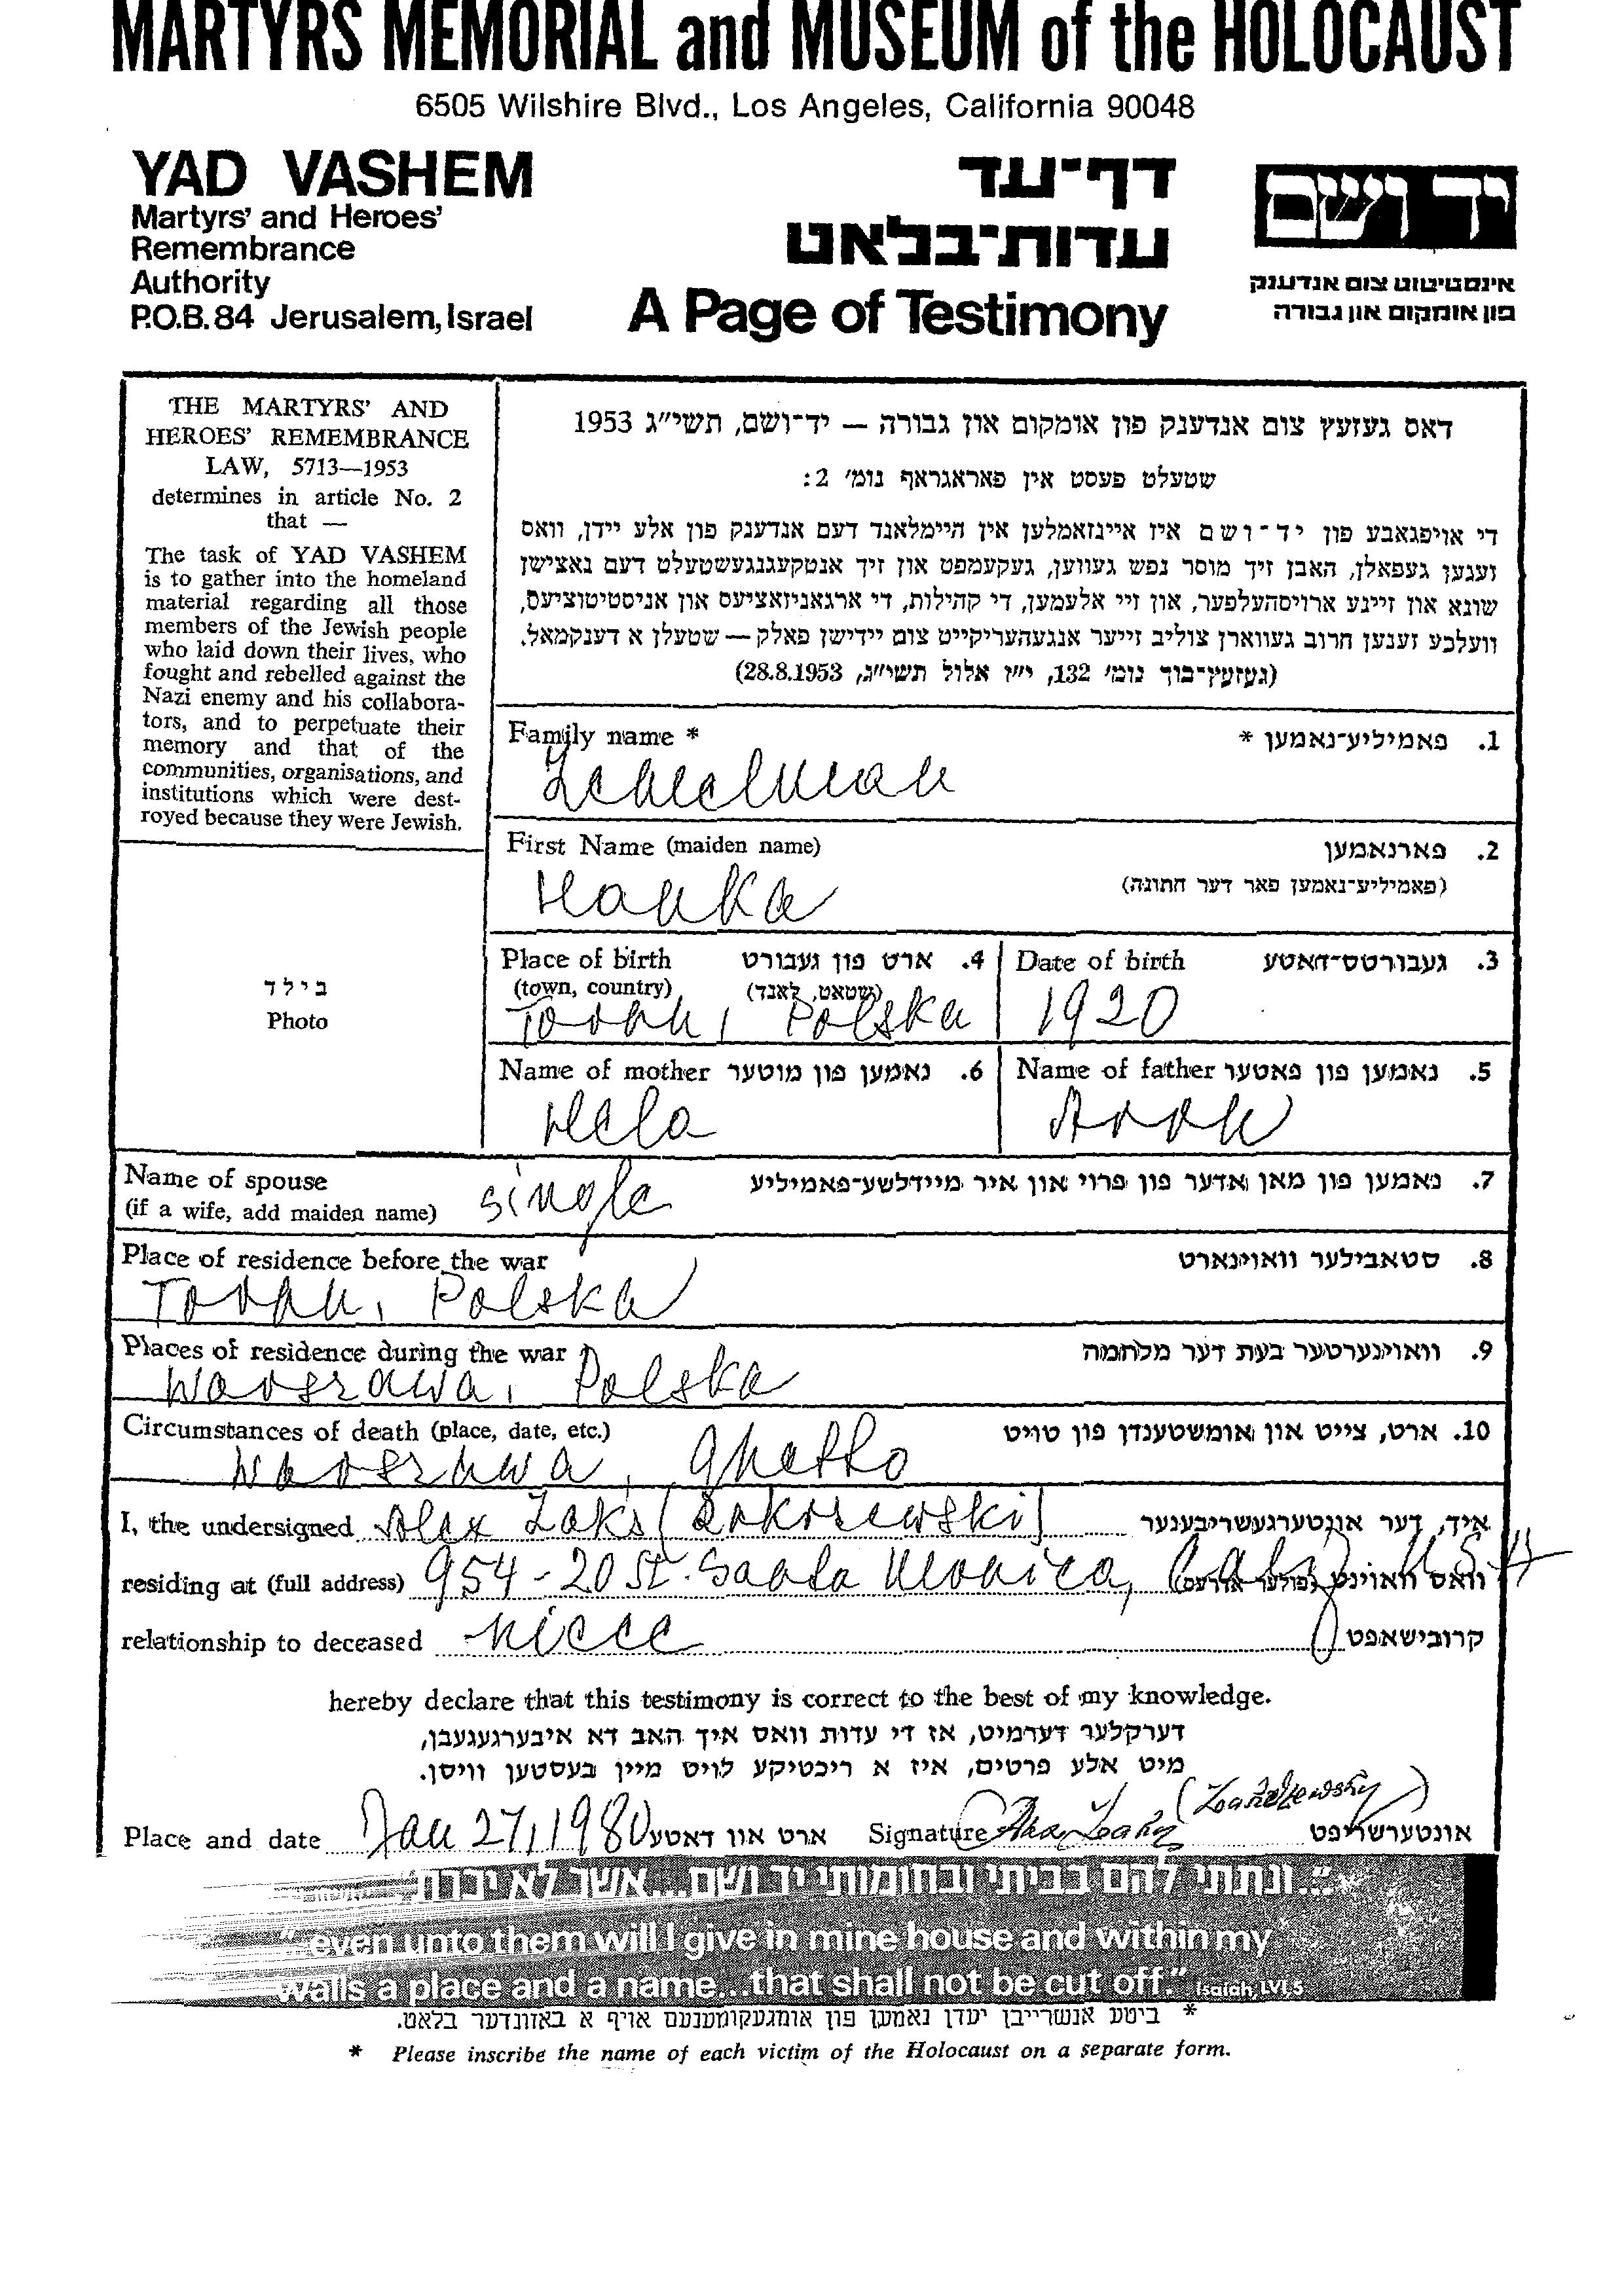 MARTYRS MEMORIAL and MUSEUM of the HOLOCAUST
6505 Wilshire Blvd., Los Angeles, California 90048
YAD VASHEM
Martyrs' and Heroes'
Remembrance
Authority
P.O.B. 84 Jerusalem, Israel
דף־עד
עדות־בלאט
A Page of Testimony
יד ושם
אינסטיטוט צום אנדענק
פון אומקום און גבורה
THE MARTYRS' AND
HEROES' REMEMBRANCE
LAW, 5713—1953
determines in article No. 2
that —
The task of YAD VASHEM
is to gather into the homeland
material regarding all those
members of the Jewish people
who laid down their lives, who
fought and rebelled against the
Nazi enemy and his collabora-
tors, and to perpetuate their
memory and that of the
communities, organisations, and
institutions which were dest-
royed because they were Jewish.
בילד
Photo
דאס געזעץ צום אנדענק פון אומקום און גבורה — יד־ושם, תשי״ג 1953
שטעלט פעסט אין פאראגראף נומ׳ 2:
די אויפגאבע פון יד־ושם איז איינזאמלען אין היימלאנד דעם אנדענק פון אלע יידן, וואס
זענען געפאלן, האבן זיך מוסר נפש געווען, געקעמפט און זיך אנטקעגנגעשטעלט דעם נאצישן
שונא און זיינע ארויסהעלפער, און זיי אלעמען, די קהילות, די ארגאניזאציעס און אינסטיטוציעס,
וועלכע זענען חרוב געווארן צוליב זייער אנגעהעריקייט צום יידישן פאלק — שטעלן א דענקמאל.
(געזעץ־בוך נומ׳ 132, י״ז אלול תשי״ג, 28.8.1953)
Family name * פאמיליע־נאמען * .1
First Name (maiden name) פארנאמען .2
(פאמיליע־נאמען פאר דער חתונה)
Hanka
Place of birth ארט פון געבורט .4 Date of birth געבורטס־דאטע .3
(town, country) (שטאט, לאנד)
Polska 1920
Name of mother נאמען פון מוטער .6 Name of father נאמען פון פאטער .5
Hela Aron
Name of spouse נאמען פון מאן אדער פון פרוי און איר מיידלשע־פאמיליע .7
(if a wife, add maiden name) single
Place of residence before the war סטאבילער וואוינארט .8
Polska
Places of residence during the war וואוינערטער בעת דער מלחמה .9
Warszawa, Polska
Circumstances of death (place, date, etc.) ארט, צייט און אומשטענדן פון טויט .10
Warszawa, Ghetto
I, the undersigned Alex Zaks איך, דער אונטערגעשריבענער
residing at (full address) 954-20 St. Santa Monica, Calif. USA וואס וואוינט (פולער אדרעס)
relationship to deceased niece קרובישאפט
hereby declare that this testimony is correct to the best of my knowledge.
דערקלער דערמיט, אז די עדות וואס איך האב דא איבערגעגעבן,
מיט אלע פרטים, איז א ריכטיקע לויט מיין בעסטען וויסן.
Place and date Jan 27, 1980 ארט און דאטע Signature אונטערשריפט
״...ונתתי להם בביתי ובחומותי יד ושם...אשר לא יכרת״
"...even unto them will I give in mine house and within my
walls a place and a name...that shall not be cut off." Isaiah, LVI.5
* ביטע אנשרייבן יעדן נאמען פון אומגעקומענעם אויף א באזונדער בלאט.
* Please inscribe the name of each victim of the Holocaust on a separate form.